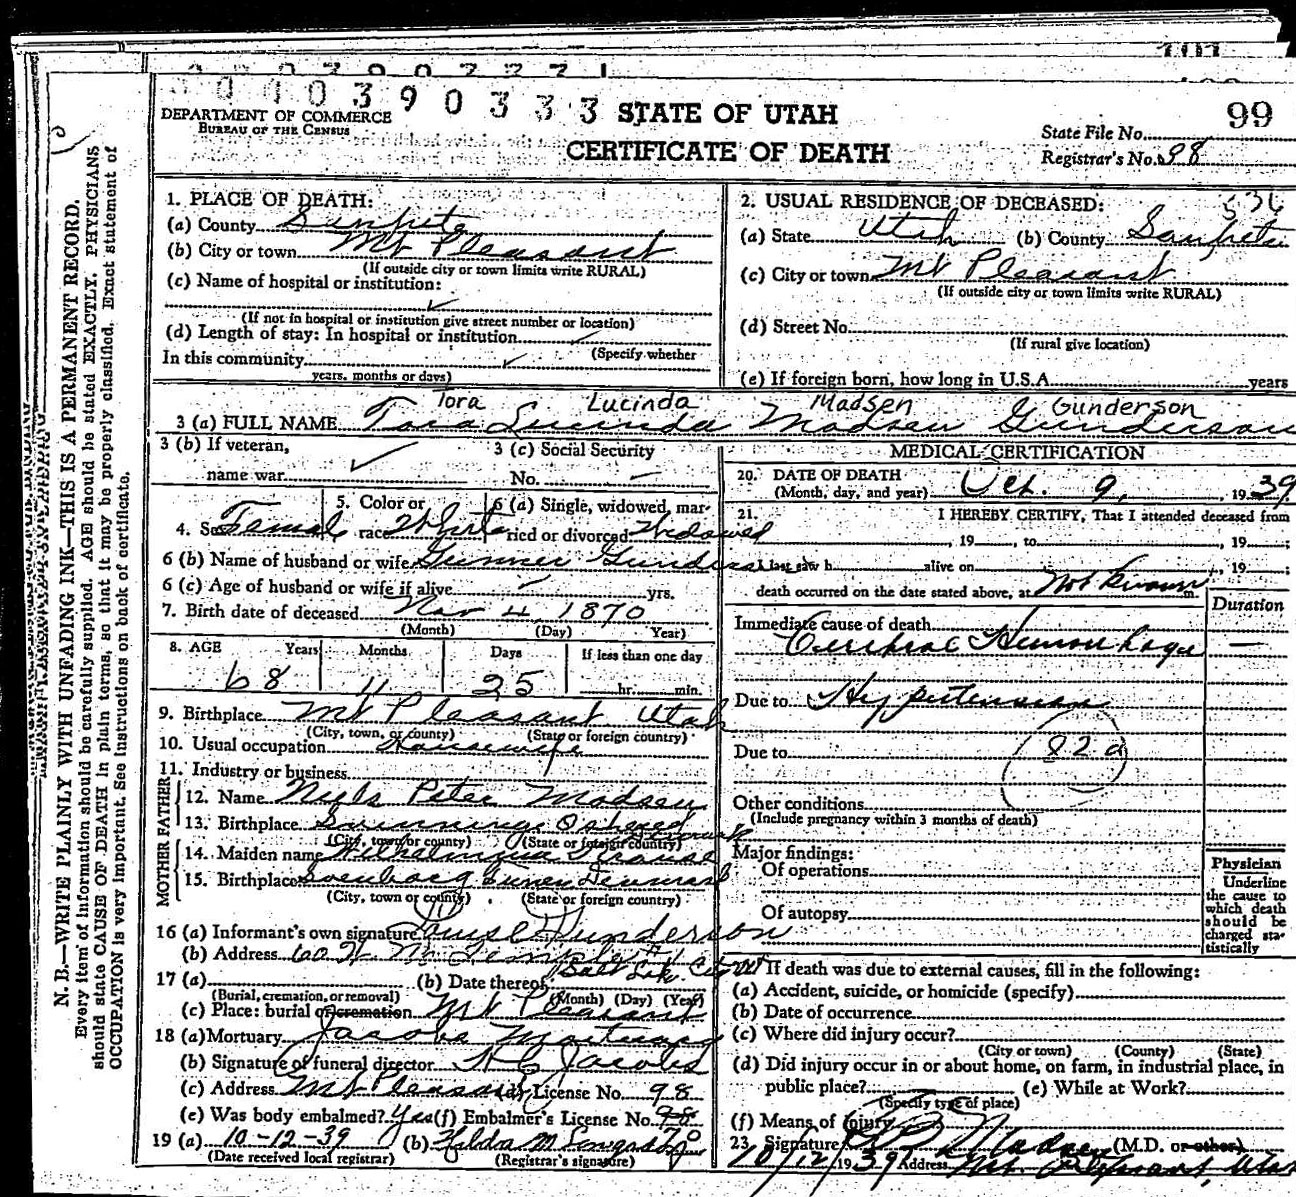 101
0 0 1 0 3 9 0 3 3 3
STATE OF UTAH
99
DEPARTMENT OF COMMERCE
BUREAU OF THE CENSUS
CERTIFICATE OF DEATH
State File No.
Registrar's No. 98
N. B.—WRITE PLAINLY WITH UNFADING INK—THIS IS A PERMANENT RECORD.
Every item of information should be carefully supplied. AGE should be stated EXACTLY. PHYSICIANS
should state CAUSE OF DEATH in plain terms, so that it may be properly classified. Exact statement of
OCCUPATION is very important. See instructions on back of certificate.
1. PLACE OF DEATH:
(a) County Sanpete
(b) City or town Mt Pleasant
(If outside city or town limits write RURAL)
(c) Name of hospital or institution:
✓
(If not in hospital or institution give street number or location)
(d) Length of stay: In hospital or institution ✓
(Specify whether
In this community ✓
years, months or days)
536
2. USUAL RESIDENCE OF DECEASED:
(a) State Utah (b) County Sanpete
(c) City or town Mt Pleasant
(If outside city or town limits write RURAL)
(d) Street No.
(If rural give location)
(e) If foreign born, how long in U.S.A. years
Tora Lucinda Madsen Gunderson
3 (a) FULL NAME Tora Lucinda Madsen Gunderson
3 (b) If veteran,
name war ✓
3 (c) Social Security
No. —
4. Sex Female
5. Color or
race White
6 (a) Single, widowed, mar-
ried or divorced Widowed
6 (b) Name of husband or wife Gunner Gunderson
6 (c) Age of husband or wife if alive — yrs.
7. Birth date of deceased Nov 4, 1870
(Month) (Day) Year)
8. AGE Years Months Days If less than one day
68 11 25 hr. min.
9. Birthplace Mt Pleasant Utah
(City, town, or county) (State or foreign country)
10. Usual occupation Housewife
11. Industry or business
FATHER
12. Name Niels Peter Madsen
13. Birthplace Denmark
(City, town or county) (State or foreign country)
MOTHER
14. Maiden name
15. Birthplace Denmark
(City, town or county) (State or foreign country)
16 (a) Informant's own signature Louise Gunderson
(b) Address 60 W. N. Temple
Salt Lake City Ut
17 (a) (b) Date thereof
(Burial, cremation, or removal) (Month) (Day) (Year)
(c) Place: burial or cremation Mt Pleasant
18 (a) Mortuary Jacobs Mortuary
(b) Signature of funeral director H C Jacobs
(c) Address Mt Pleasant (d) License No. 98
(e) Was body embalmed? Yes (f) Embalmer's License No. 98
19 (a) 10-12-39 (b) Hilda M
(Date received local registrar) (Registrar's signature)
MEDICAL CERTIFICATION
20. DATE OF DEATH
(Month, day, and year) Oct. 9, 1939
21. I HEREBY CERTIFY, That I attended deceased from
, 19 , to , 19 ;
I last saw h alive on , 19 ;
death occurred on the date stated above, at Not known m.
Duration
Immediate cause of death
Cerebral Hemorrhage —
Due to Hypertension
Due to 82a
Other conditions
(Include pregnancy within 3 months of death)
Major findings:
Of operations
Of autopsy
Physician
Underline
the cause to
which death
should be
charged sta-
tistically
If death was due to external causes, fill in the following:
(a) Accident, suicide, or homicide (specify)
(b) Date of occurrence
(c) Where did injury occur?
(City or town) (County) (State)
(d) Did injury occur in or about home, on farm, in industrial place, in
public place? (e) While at Work?
(Specify type of place)
(f) Means of injury
23. Signature Madsen (M.D. or other)
10/12/1939 Address Mt. Pleasant, Utah